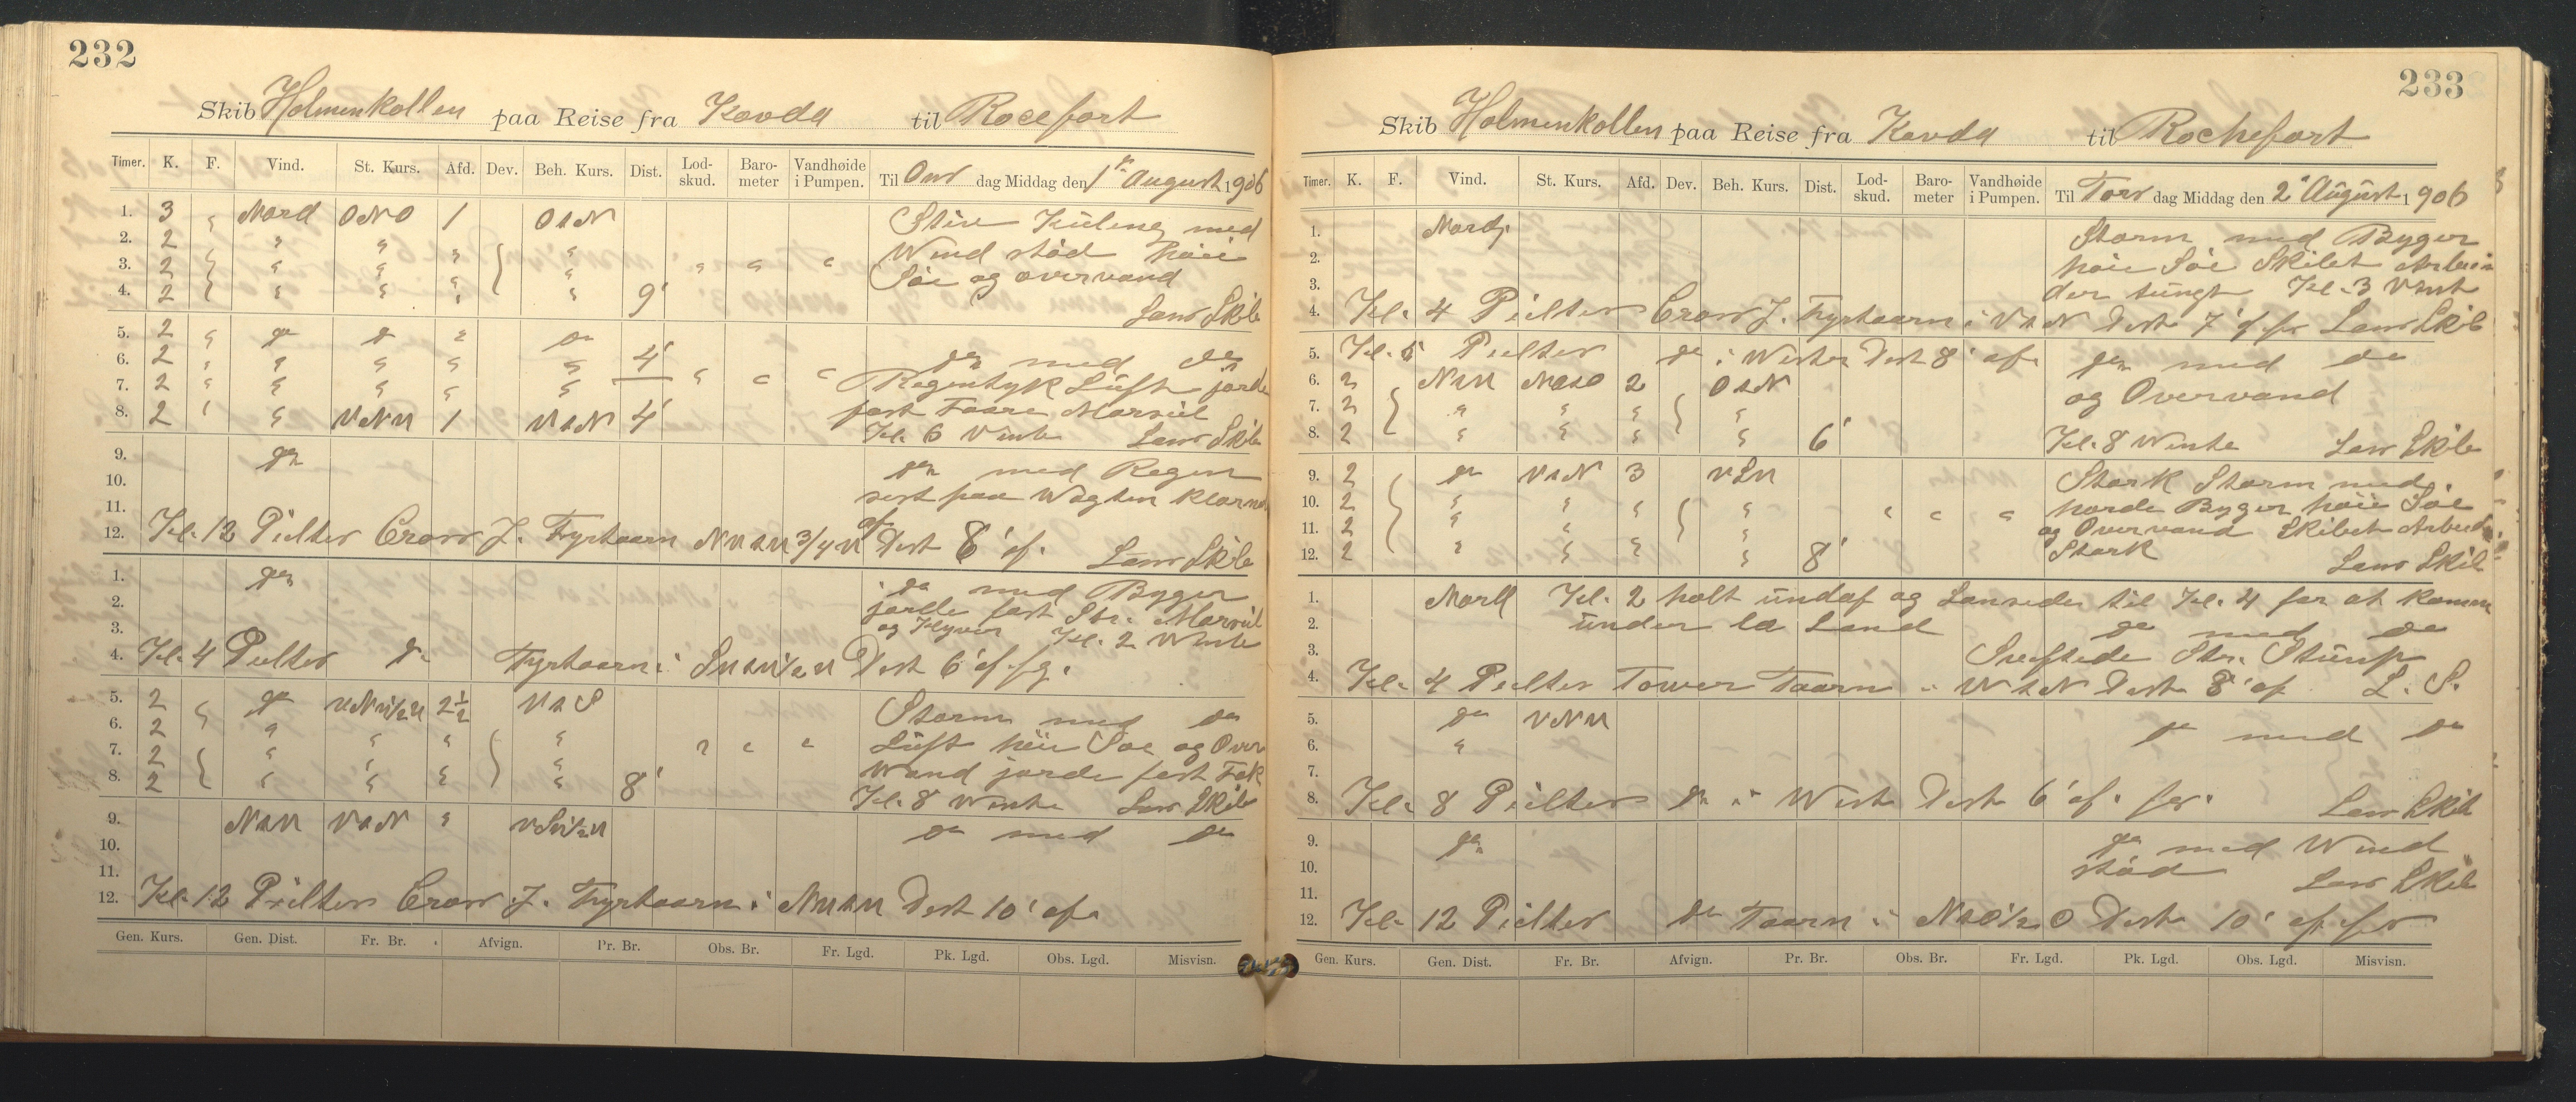 232
Skib Holmenkollen paa Reise fra Kovda til Rocefort
Timer. K. F. Vind. St. Kurs. Afd. Dev. Beh. Kurs. Dist. Lod-skud. Baro-meter Vandhøide i Pumpen. Til Ons dag Middag den 1ste August 1906
1. 3 " Nord ONO 1 OtN Stiv Kuling med
2. 2 " " " " Wind stød høie
3. 2 " " " " " " " Søe og overvand
4. 2 " " " " 9' Lens Skib
5. 2 " do do " do
6. 2 " " " " " 4' do med do
7. 2 " " " " " " " " Regentyk Luft jorde
8. 2 " " VNV 1 VtN 4' fast Faare Marseil
Kl. 6 Vente Lens Skib
9. do do med Regn
10. sist paa Wagten klarne
11. af
12. Kl. 12 Peilter Cross J. Fyrtaarn NVtV 3/4 V Dest 8' af. Lens Skib
1. do do med Byger
2. jorde fast Str. Marseil
3. og Klyver Kl. 2 Wente
4. Kl. 4 Peilter do Fyrtaarn i SVtV 1/2 V Dest 6' af. fg.
5. 2 " do VNV 1/2 V 2 1/2 VtS Storm med do
6. 2 " " " " Luft høie Søe og Over
7. 2 " " " " " " " Wand jorde fast Fok
8. 2 " " " " 8' Kl. 8 Wente Lens Skib
9. NtV VtN " VSV 1/2 V do med do
10.
11.
12. Kl. 12 Peilter Cross J. Fyrtaarn i NVtV Dest 10' af.
Gen. Kurs. Gen. Dist. Fr. Br. Afvign. Pr. Br. Obs. Br. Fr. Lgd. Pk. Lgd. Obs. Lgd. Misvisn.
233
Skib Holmenkollen paa Reise fra Kovda til Rochefort
Timer. K. F. Vind. St. Kurs. Afd. Dev. Beh. Kurs. Dist. Lod-skud. Baro-meter Vandhøide i Pumpen. Til Tors dag Middag den 2den August 1906
1. Nordl. Storm med Byger
2. høie Søe Skibet Arbei
3. der tungt Kl. 3 Vent
4. Kl. 4 Peilter Cross J. Fyrtaarn i VtN Dest 7' af fr Lens Skib
5. Kl. 5 Peilter do i Westen Dest 8' af. do med do
6. 2 NtV NOtO 2 OtN og Overvand
7. 2 " " " "
8. 2 " " " " 6' Kl. 8 Wente Lens Skib
9. 2 do VtN 3 VSV Stærk Storm med
10. 2 " " " " harde Byger høie Søe
11. 2 " " " " " " " og Overvand Skibet Arbeid
12. 2 " " " " 8' Stærk Lens Skib
1. Nord Kl. 2 holt undaf og Lensede til Kl. 4 for at komme
2. under læ Land do med do
3. Sreftede Str. Stump
4. Kl. 4 Peilter Tower Taarn i WtN Dest 8' af L. S.
5. do VNV do med do
6. "
7.
8. Kl. 8 Peilter do i West Dest 6' af. fr. Lens Skib
9. do do med Wind
10. stød Lens Skib
11.
12. Kl. 12 Peilter do Taarn i NtO 1/2 O Dest 10' af fr
Gen. Kurs. Gen. Dist. Fr. Br. Afvign. Pr. Br. Obs. Br. Fr. Lgd. Pk. Lgd. Obs. Lgd. Misvisn.